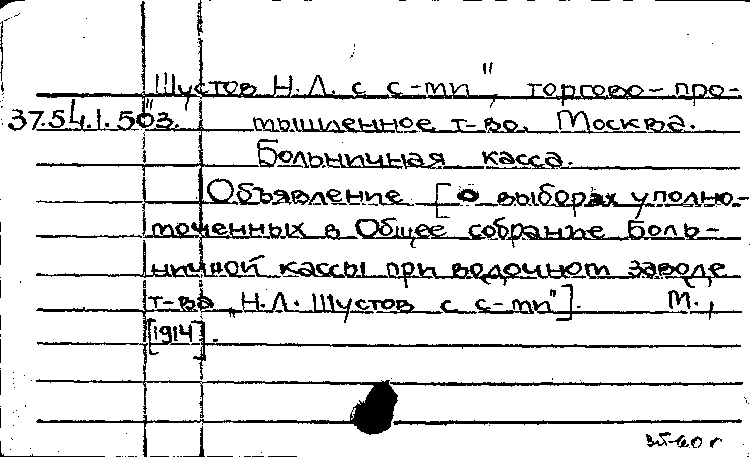 "Шустов Н.Л. с с-ми", торгово-про-
37.54.1.503. мышленное т-во. Москва.
Больничная касса.
Объявление [о выборах уполно-
моченных в Общее собрание Боль-
ничной кассы при водочном заводе
т-ва "Н.Л. Шустов с с-ми"]. М.,
[1914].